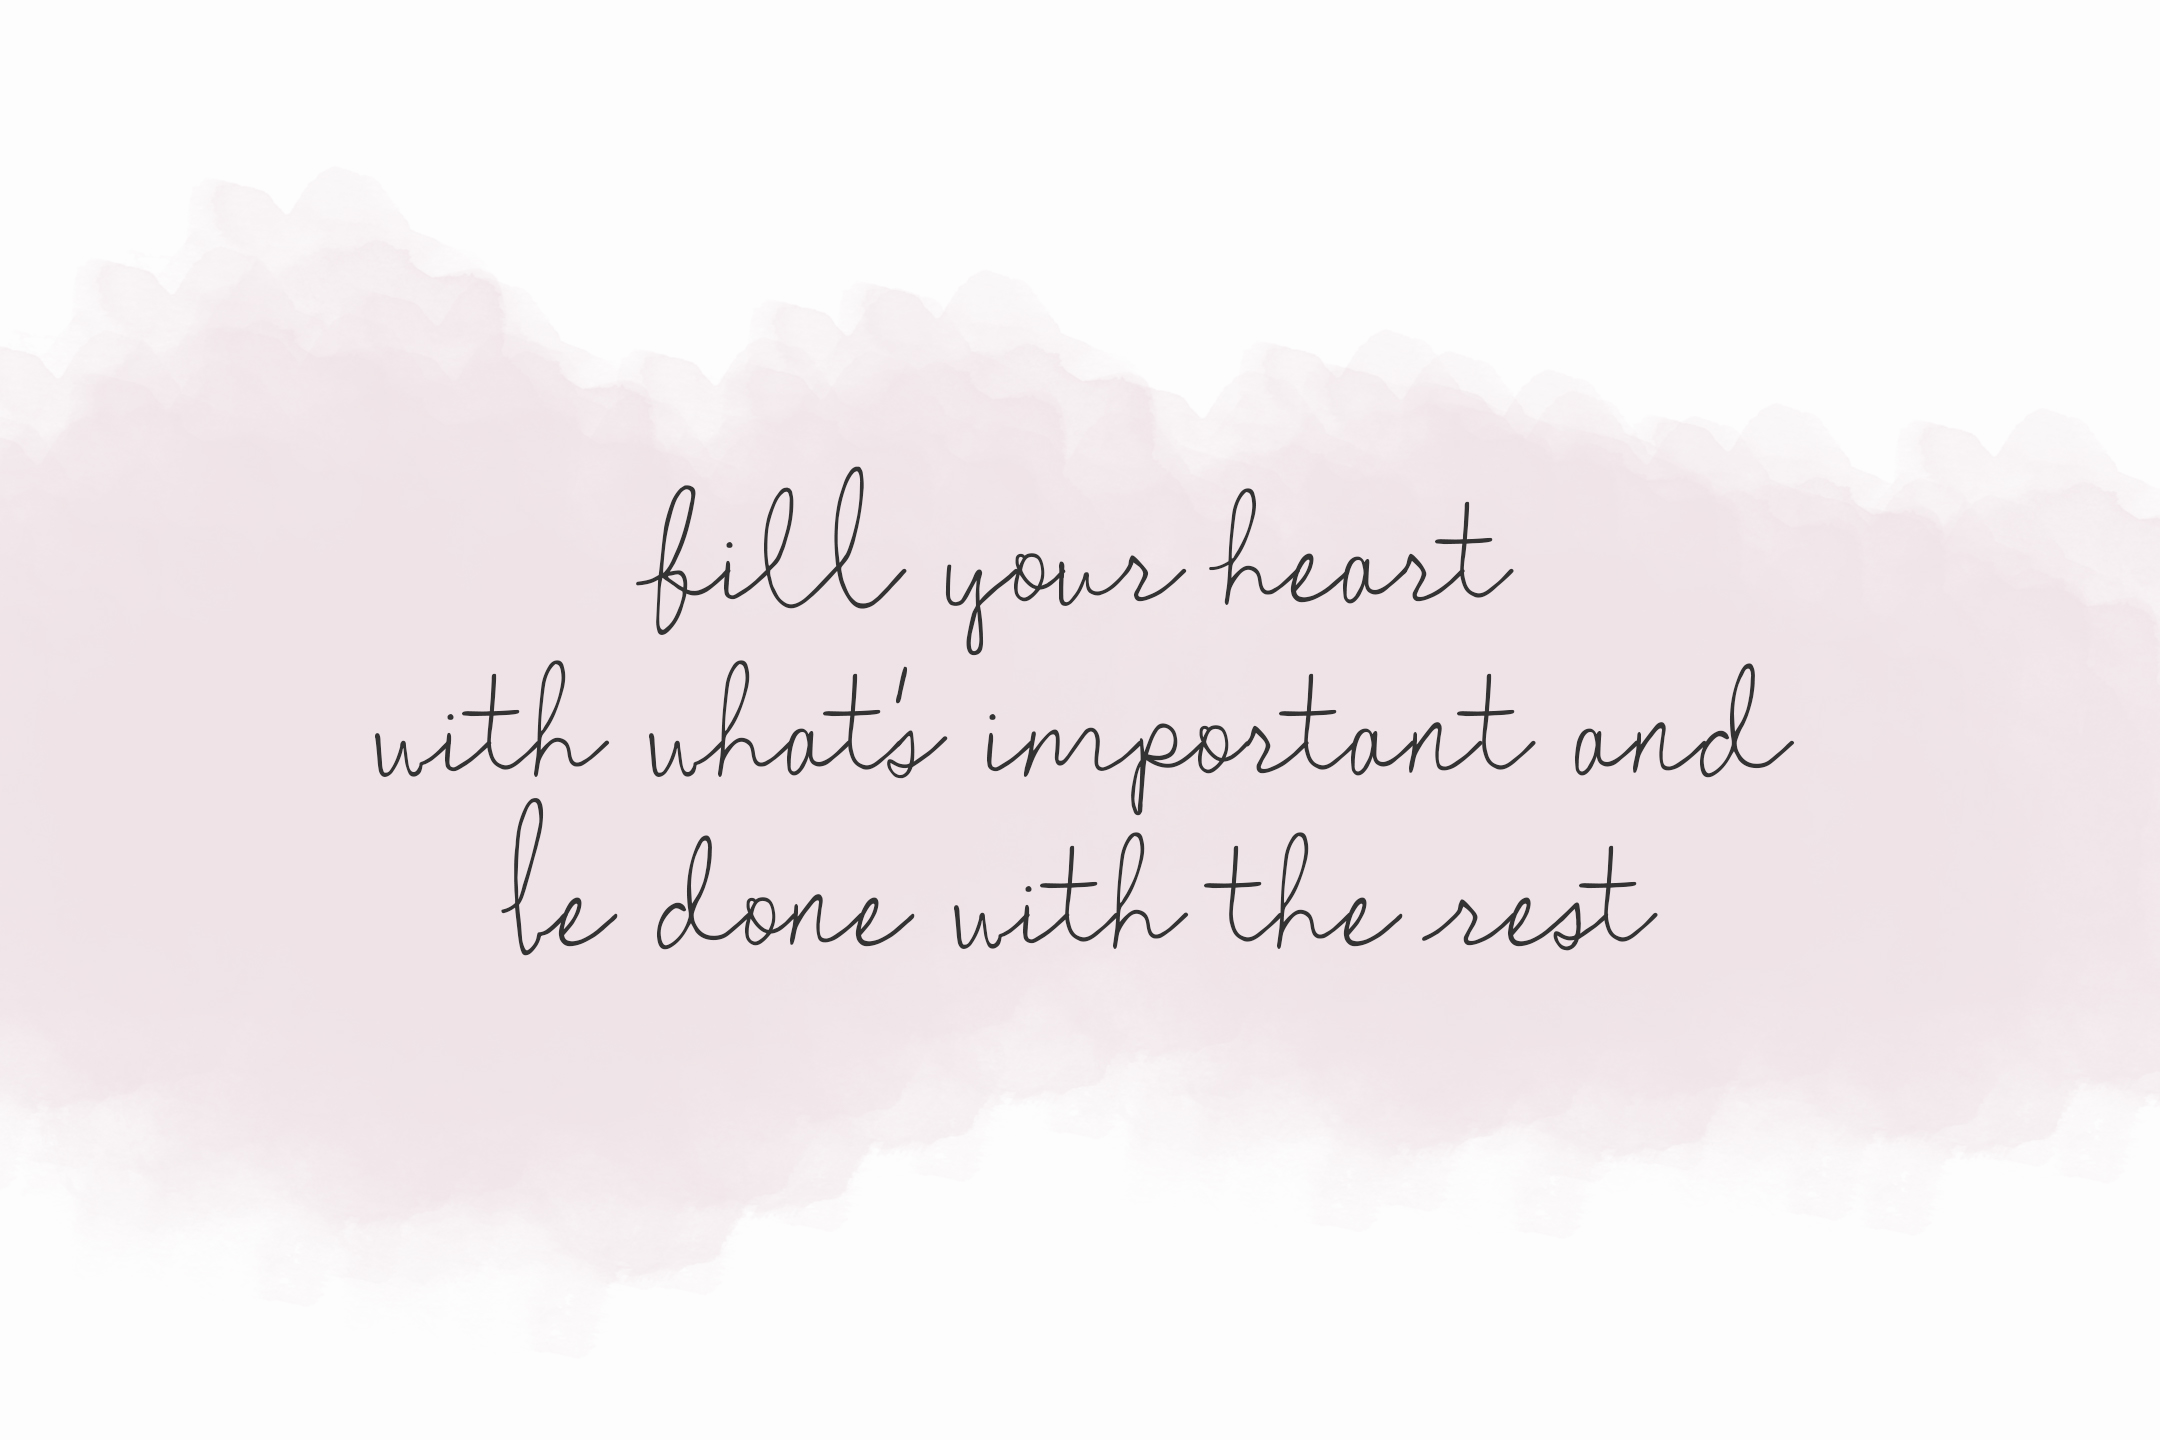 fill your heart
with what's important and
be done with the rest